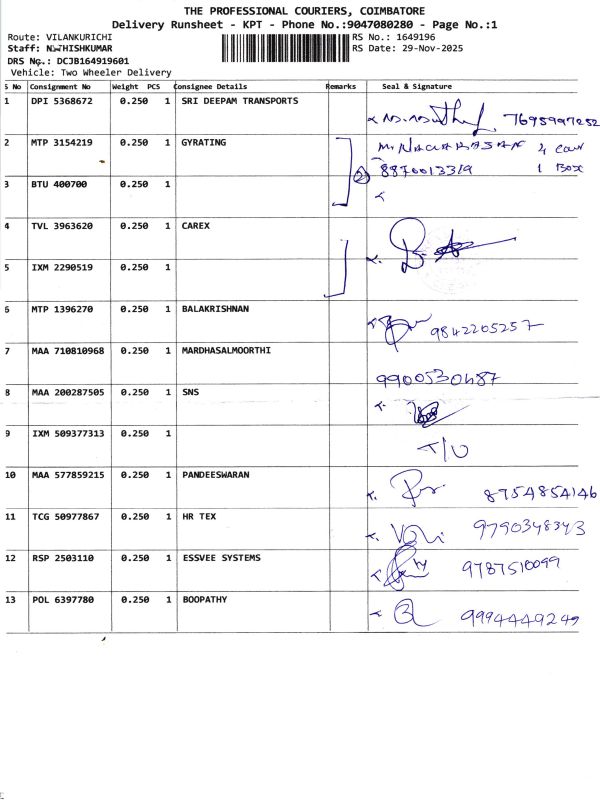 THE PROFESSIONAL COURIERS, COIMBATORE
Delivery Runsheet - KPT - Phone No.:9047080280 - Page No.:1
Route: VILANKURICHI RS No.: 1649196
Staff: NITHISHKUMAR RS Date: 29-Nov-2025
DRS No.: DCJB164919601
Vehicle: Two Wheeler Delivery
S No Consignment No Weight PCS Consignee Details Remarks Seal & Signature
1 DPI 5368672 0.250 1 SRI DEEPAM TRANSPORTS 7695997252
2 MTP 3154219 0.250 1 GYRATING
8870013319 1 Box
3 BTU 400700 0.250 1 2
4 TVL 3963620 0.250 1 CAREX
5 IXM 2290519 0.250 1
6 MTP 1396270 0.250 1 BALAKRISHNAN 9842205257
7 MAA 710810968 0.250 1 MARDHASALMOORTHI 9900530487
8 MAA 200287505 0.250 1 SNS
9 IXM 509377313 0.250 1 T/U
10 MAA 577859215 0.250 1 PANDEESWARAN 8754854146
11 TCG 50977867 0.250 1 HR TEX 9790348343
12 RSP 2503110 0.250 1 ESSVEE SYSTEMS 9787510099
13 POL 6397780 0.250 1 BOOPATHY 9994449249